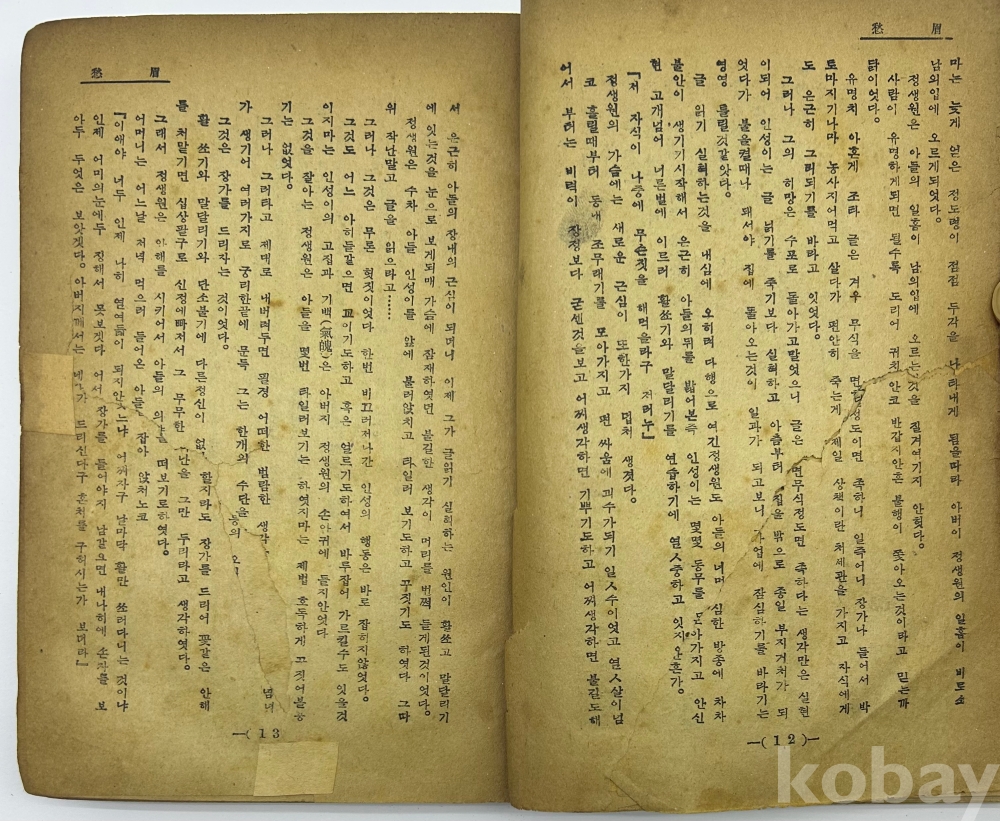 眉愁
마는 늦게 얻은 정도령이 점점 두각을 나타내게 됨을따라 아버이 정생원의 일홈이 비로소
남의입에 오르게되엿다.
정생원은 아들의 일홈이 남의입에 오르는것을 질겨여기지 안헛다.
사람이 유명하게되면 될수록 도리어 귀치안코 반갑지안흔 불행이 쫓아오는것이라고 믿는까
닭이엇다.
유명치 아혼게 조타 글은 겨우 무식을 면할정도이면 족하니 일즉어니 장가나 들어서 박
토마지기나마 농사지어먹고 살다가 편안히 죽는게 제일 상책이란 처세관을 가지고 자식에게
도 은근히 그러되기를 바라고 잇엇다.
그러나 그의 히망은 수포로 돌아가고말엇으니 글은 면무식정도면 족하다는 생각만은 실현
이되여 인성이는 글 낡기를 죽기보다 실혀하고 아츰부터 집을 밖으로 종일 부지거처가 되
엇다가 불을켤때나 돼서야 집에 돌아오는것이 일과가 되고보니 사업에 잠심하기를 바라기는
영영 틀릴것같앗다.
글 읽기 실혀하는것을 내심에 오히려 다행으로 여긴정생원도 아들의 너머 심한 방종에 차차
불안이 생기기시작해서 은근히 아들의뒤를 밟어본즉 인성이는 몇몇 동무를 모아가지고 안신
현 고개넘어 너른벌에 이르러 활쏘기와 말달리기를 연습하기에 열人중하고 잇지
『저 자식이 나중에 무슨짓을 해먹을라구 저러누』
정생원의 가슴에는 새로운 근심이 또한가지 덥처 생겻다.
코 흘릴때부터 동내 조무래기를 모아가지고 편 싸움에 괴수가되기 일人수이엇고 열人살이넘
어서 부리는 비력이 장정보다 굳센것을보고 어찌생각하면 기뿌기도하고 어찌생각하면 불길도해
—(12)—
眉愁
서 은근히 아들의 장내의 근심이 되며니 이제 그가 글읽기 실혀하는 원인이 활쏘고 말달리기
에 잇는것을 눈으로 보게되매 가슴에 잠재하엿면 불길한 생각이 머리를 번쩍 들게된것이엇다.
정생원은 수차 아들 인성이를 앞에 불러앉치고 타일러 보기도하고 꾸짓기도 하엿다 그따
위 작난말고 글을 읽으라고……
그러나 그것은 무론 헛짓이엇다 한번 비끄러저나간 인성의 행동은 바로 잡히지않엇다.
그것도 어느 아히들같으면 꾀이기도하고 혹은 얼르기도하여서 바루잡어 가르킬수도 잇을것
이지마는 인성이의 고집과 기백(氣魄)은 아버지 정생원의 손안귀에 들지안엇다
그것을 잘아는 정생원은 아들을 몇번 타일러보기는 하엿지마는 제법 호독하게 꼬짓어볼
기는 없엇다.
그러나 그러타고 제대로 내버려두면 필경 어떠한 범람한 생각
가 생기어 여러가지로 궁리한끝에 문득 그는 한개의 수단을
그것은 장가를 드리자는 것이엇다.
활 쏘기와 말달리기와 단소불기에 다른정신이 없 할지라도 장가를 드리어 꽃같은 안해
를 처말기면 심상팔구로 신정에빠저서 그 무무한 난을 그만 두리라고 생각하엿다.
그래서 정생원은 안해를 시키어서 아들의 의 떠보기로하엿다.
어머니는 어느날 저녁 먹으러 들어온 아들 잡아 앉처노코
『이애야 너두 인제 나히 열여듧이 되지안느냐 어쩌자구 날마닥 활만 쏘러다니는 것이냐
인제 어미의눈에두 징해서 못보겟다 어서 장가를 들어야지 남같으면 네나히에 손자를 보
아두 두엇은 보앗겟다. 아버지께서는 네 가 드리신다구 혼처를 구허시는가 보더라』
—(13)—
kobay